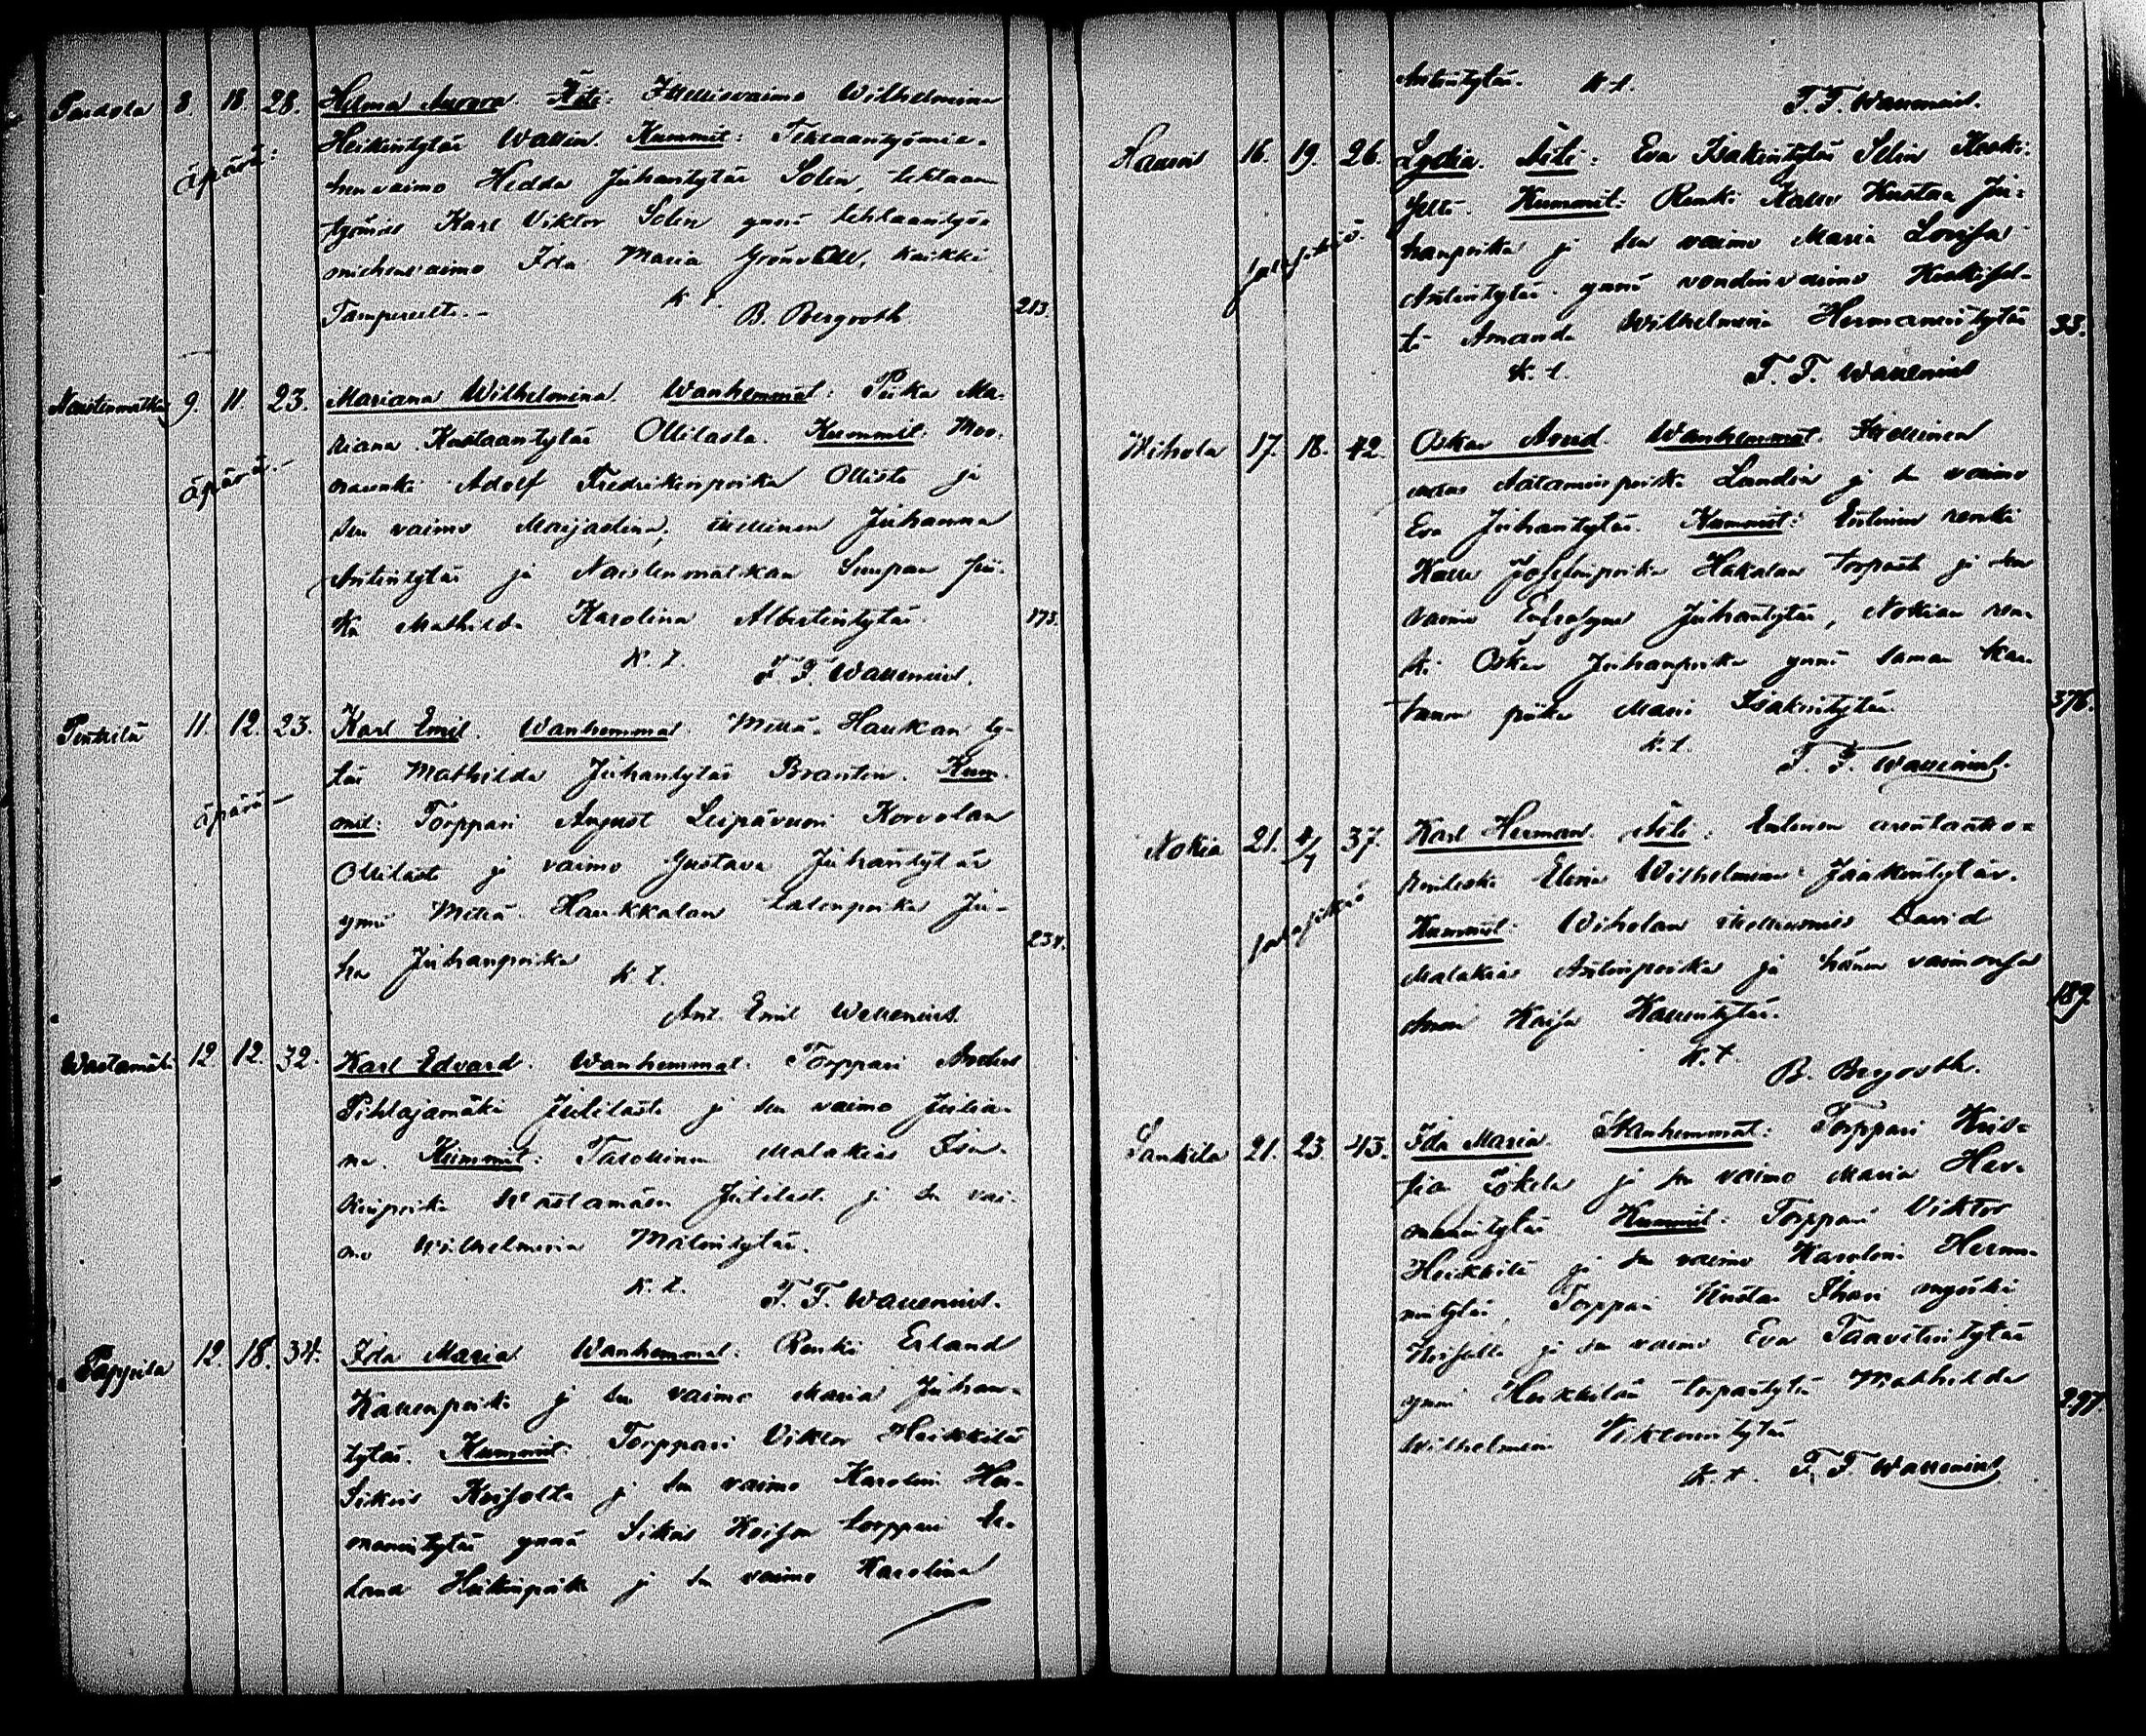 Taudola 8. 18 28. Hilma Aurora. Äiti: Itsellisvaimo Wilhelmina
Heikintytär Wallin. Kummit: Tehtaantyömie-
äpärä:
hen vaimo Hedda Juhantytär Solin, tehtaan
työmies Karl Viktor Solin ynnä tehtaantyö-
miehenvaimo Ida Maria Grönvall, kaikki
Tampereelta. -
k. t. B. Bergroth. 213.
Naistenmatka 9. 11. 23. Mariana Wilhelmina. Wanhemmat: Piika Ma-
riana Kustaantytär Ollilasta. Kummit: Moo-
äpärä. -
narenki Adolf Fredrikinpoika Ollista ja
sen vaimo Maijastina, itsellinen Juhanna
Antintytär ja Naistenmatkan Simpan pii-
ka Mathilda Karolina Albertintytär. 173.
k. t. F. F. Wallenius.
Penttilä 11. 12. 23. Karl Emil. Wanhemmat. Mellä-Haukan ty-
tär Mathilda Juhantytär Brantin. Kum-
äpärä -
mit: Torppari August Leipävuori Korvolan
Ollilasta ja vaimo Gustava Juhantytär
ynnä Mellä-Haukkalan talonpoika Ju-
ha Juhanpoika 234.
k. t.
Ant. Emil Wallenius.
Wastamäki 12. 12. 32. Karl Edvard. Wanhemmat. Torppari Anders
Pihlajamäki Jutilasta ja sen vaimo Julia-
na. Kummit: Talollinen Malakias Isa-
kinpoika Wastamäen Jutilasta ja sen vai-
mo Wilhelmina Matintytär.
k. t. F. F. Wallenius.
Pappila 12. 18. 34. Ida Maria. Wanhemmat: Renki Erland
Kallenpoika ja sen vaimo Maria Juhan-
tytär. Kummit: Torppari Viktor Heikkilä
Siikis Knifolta ja sen vaimo Karolina Her-
manintytär ynnä Siikis Koifon torppari Er-
land Heikinpoika ja sen vaimo Karolina
Antintytär. k. t.
F. F. Wallenius.
Hauris 16. 19. 26. Lydia. Äiti: Eva Isakintytär Selin Koski-
selta. Kummit: Renki Kalle Kustaa Ju-
salasikiö.
hanpoika ja sen vaimo Maria Lovisa
Antintytär ynnä voudinvaimo Koskisel-
tä Amanda Wilhelmina Hermanintytär 33.
k. t. F. F. Wallenius
Wihola 17. 18. 42. Oskar Arvid. Wanhemmat. Itsellinen
Aataminpoika Landin ja sen vaimo
Eva Juhantytär. Kummit: Entinen renki
Kalle Josefinpoika Hakalan torpasta ja sen
vaimo Eufrosyne Juhantytär, Nokian ren-
ki Oskar Juhanpoika ynnä saman kar-
tanon piika Maria Isakintytär. 376.
k. t.
F. F. Wallenius.
Nokia 21. 4/7 37. Karl Herman. Äiti: Entinen
Elina Wilhelmina Jaakontytär.
salasikiö
Kummit: Wiholan itsellismies David
Malakias Antinpoika ja hänen vaimonsa
Anna Kaisa Kallentytär. 189.
k. t.
B. Bergroth.
Sankila 21. 23 43. Ida Maria. Wanhemmat: Torppari Kris-
tian Jokela ja sen vaimo Maria Her-
manintytär. Kummit: Torppari Viktor
Heikkilä ja sen vaimo Karolina Herma-
nintytär, Torppari Kustaa Ihari
ja sen vaimo Eva Taavetintytär
ynnä Heikkilän torpantytär Mathilda 297
Wilhelmina Viktorintytär
k. t. F. F. Wallenius